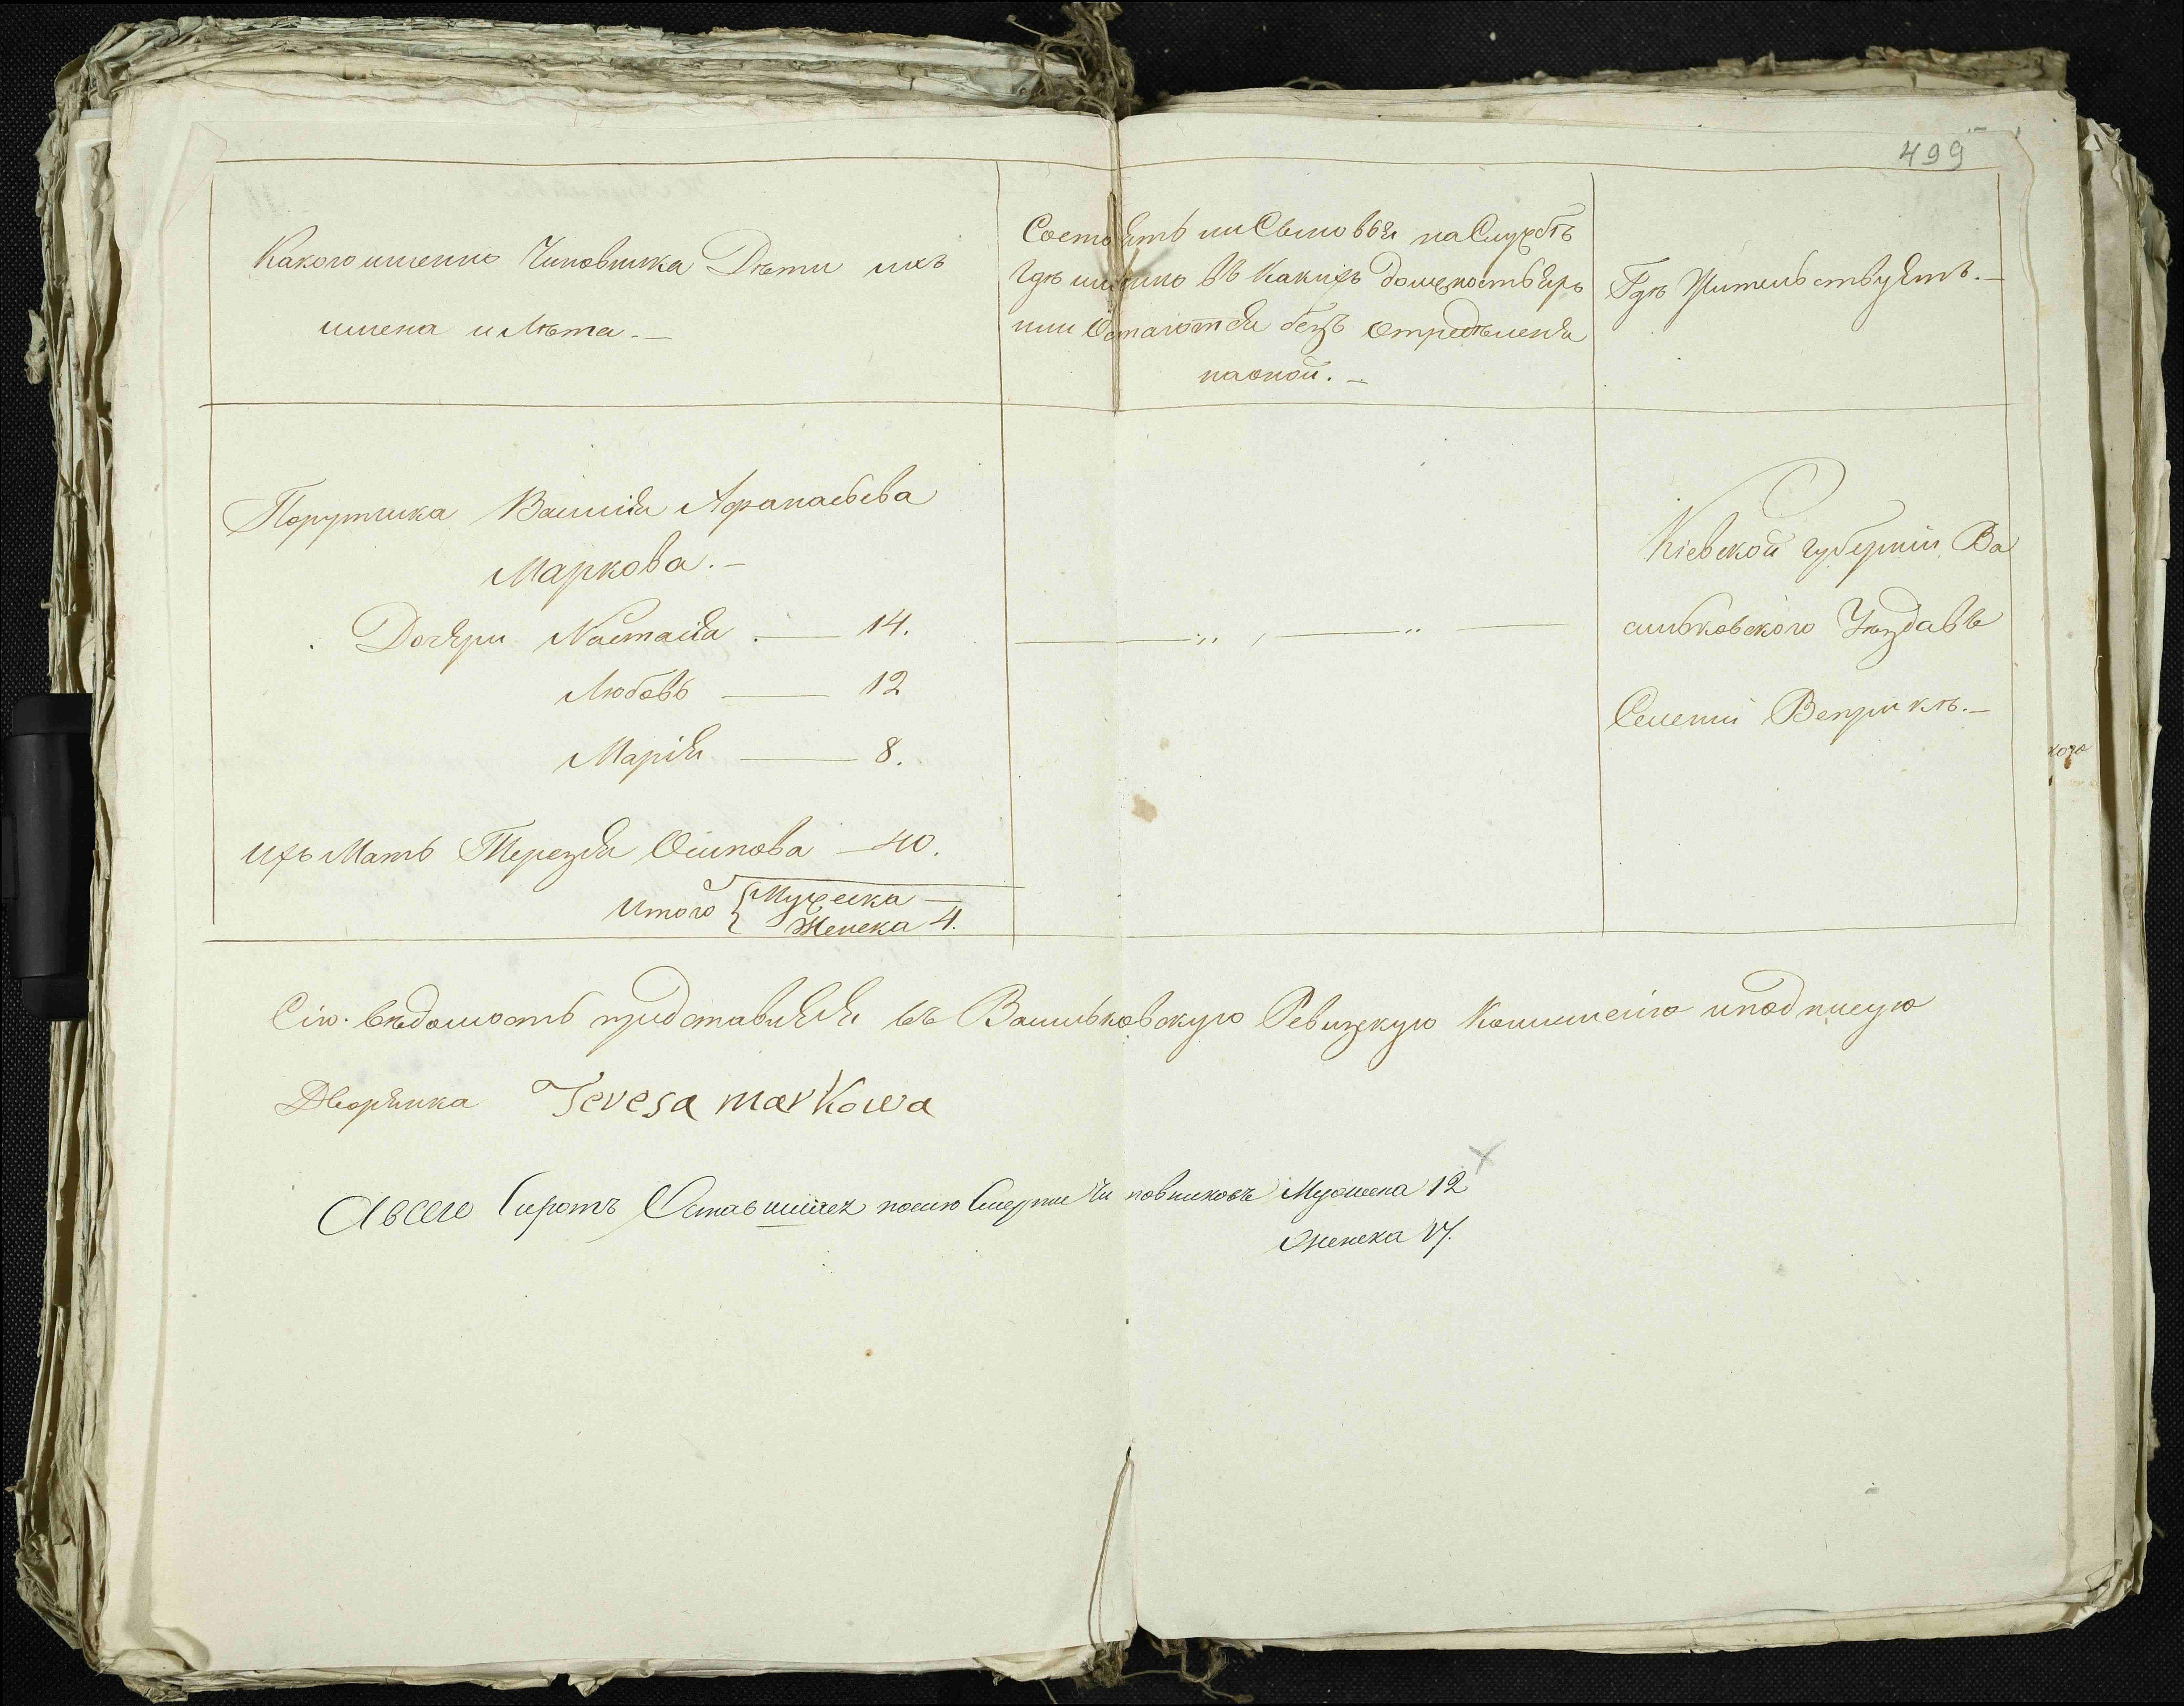 499
Какого именно Чиновника Дѣти ихъ
имена и Лѣта. —
Состоятъ ли Сыновья на Службѣ
гдѣ именно въ Какихъ должностьяхъ
или Остаются безъ опредѣленія
наоной. —
Гдѣ Жительствуятъ. —
Порутчика Василія Афанасьева
Маркова. —
Дочяри Настасія — 14.
Любовь — 12
Марія — 8.
Ихъ Мать Терезія Осипова — 40.
Итого { Мужеска —
Женска 4.
Кіевской губерніи Ва
сильковского Уѣзда въ
Селеніи Веприкѣ. —
Сію вѣдомость представляя въ Васильковскую Ревизкую Коммисію и подписую
Дворянка Teresa markowa
А всего Сиротъ Оставшихся после Смерти Чиновниковъ Мужеска 12
Женска 17.
кого